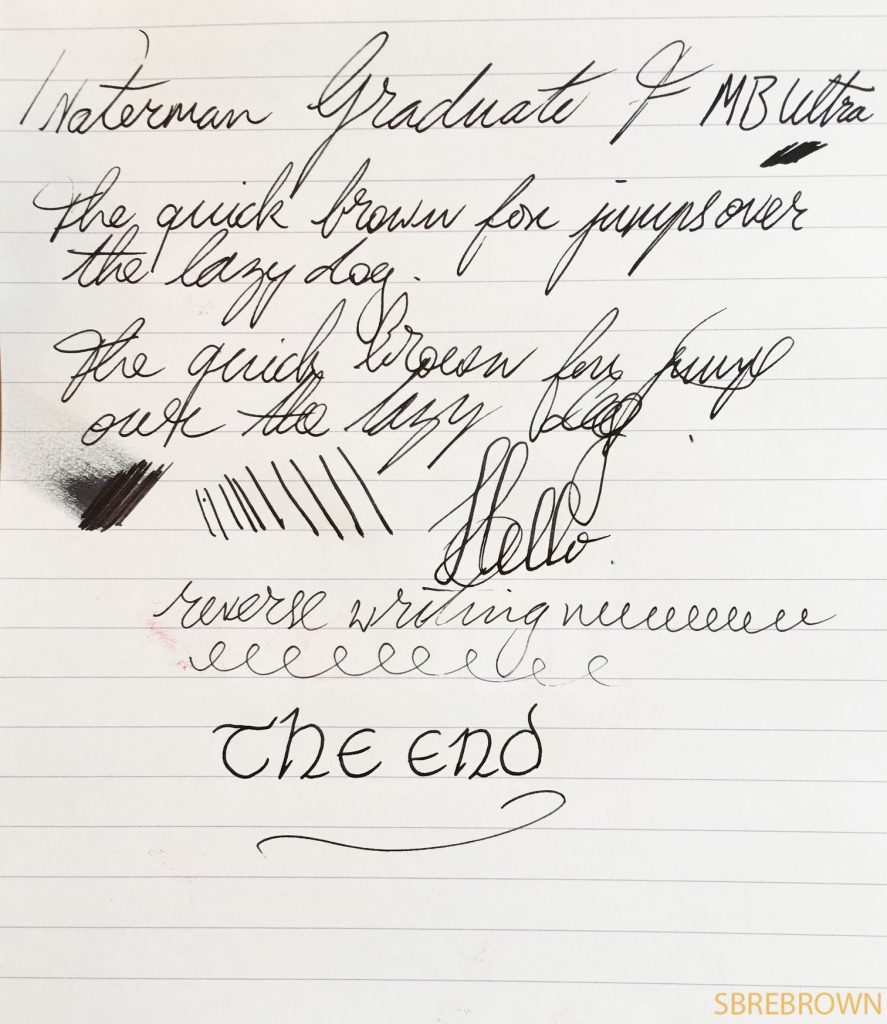 Waterman Graduate F MB Ultra
The quick brown fox jumps over
the lazy dog.
The quick brown fox jumps
over the lazy dog.
Hello.
reverse writing
The End
SBREBROWN